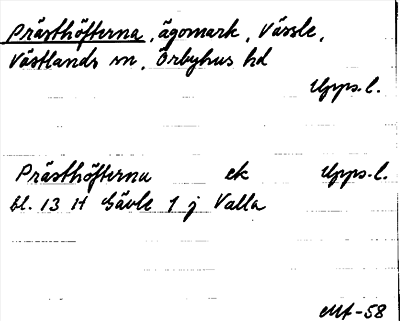 Prästhöfterna, ägomark, Vässle,
Västlands sn, Örbyhus hd
Upps. l.
Prästhöfterna ek Upps. l.
bl. 13 H Gävle 1 j Valla
Mf-58